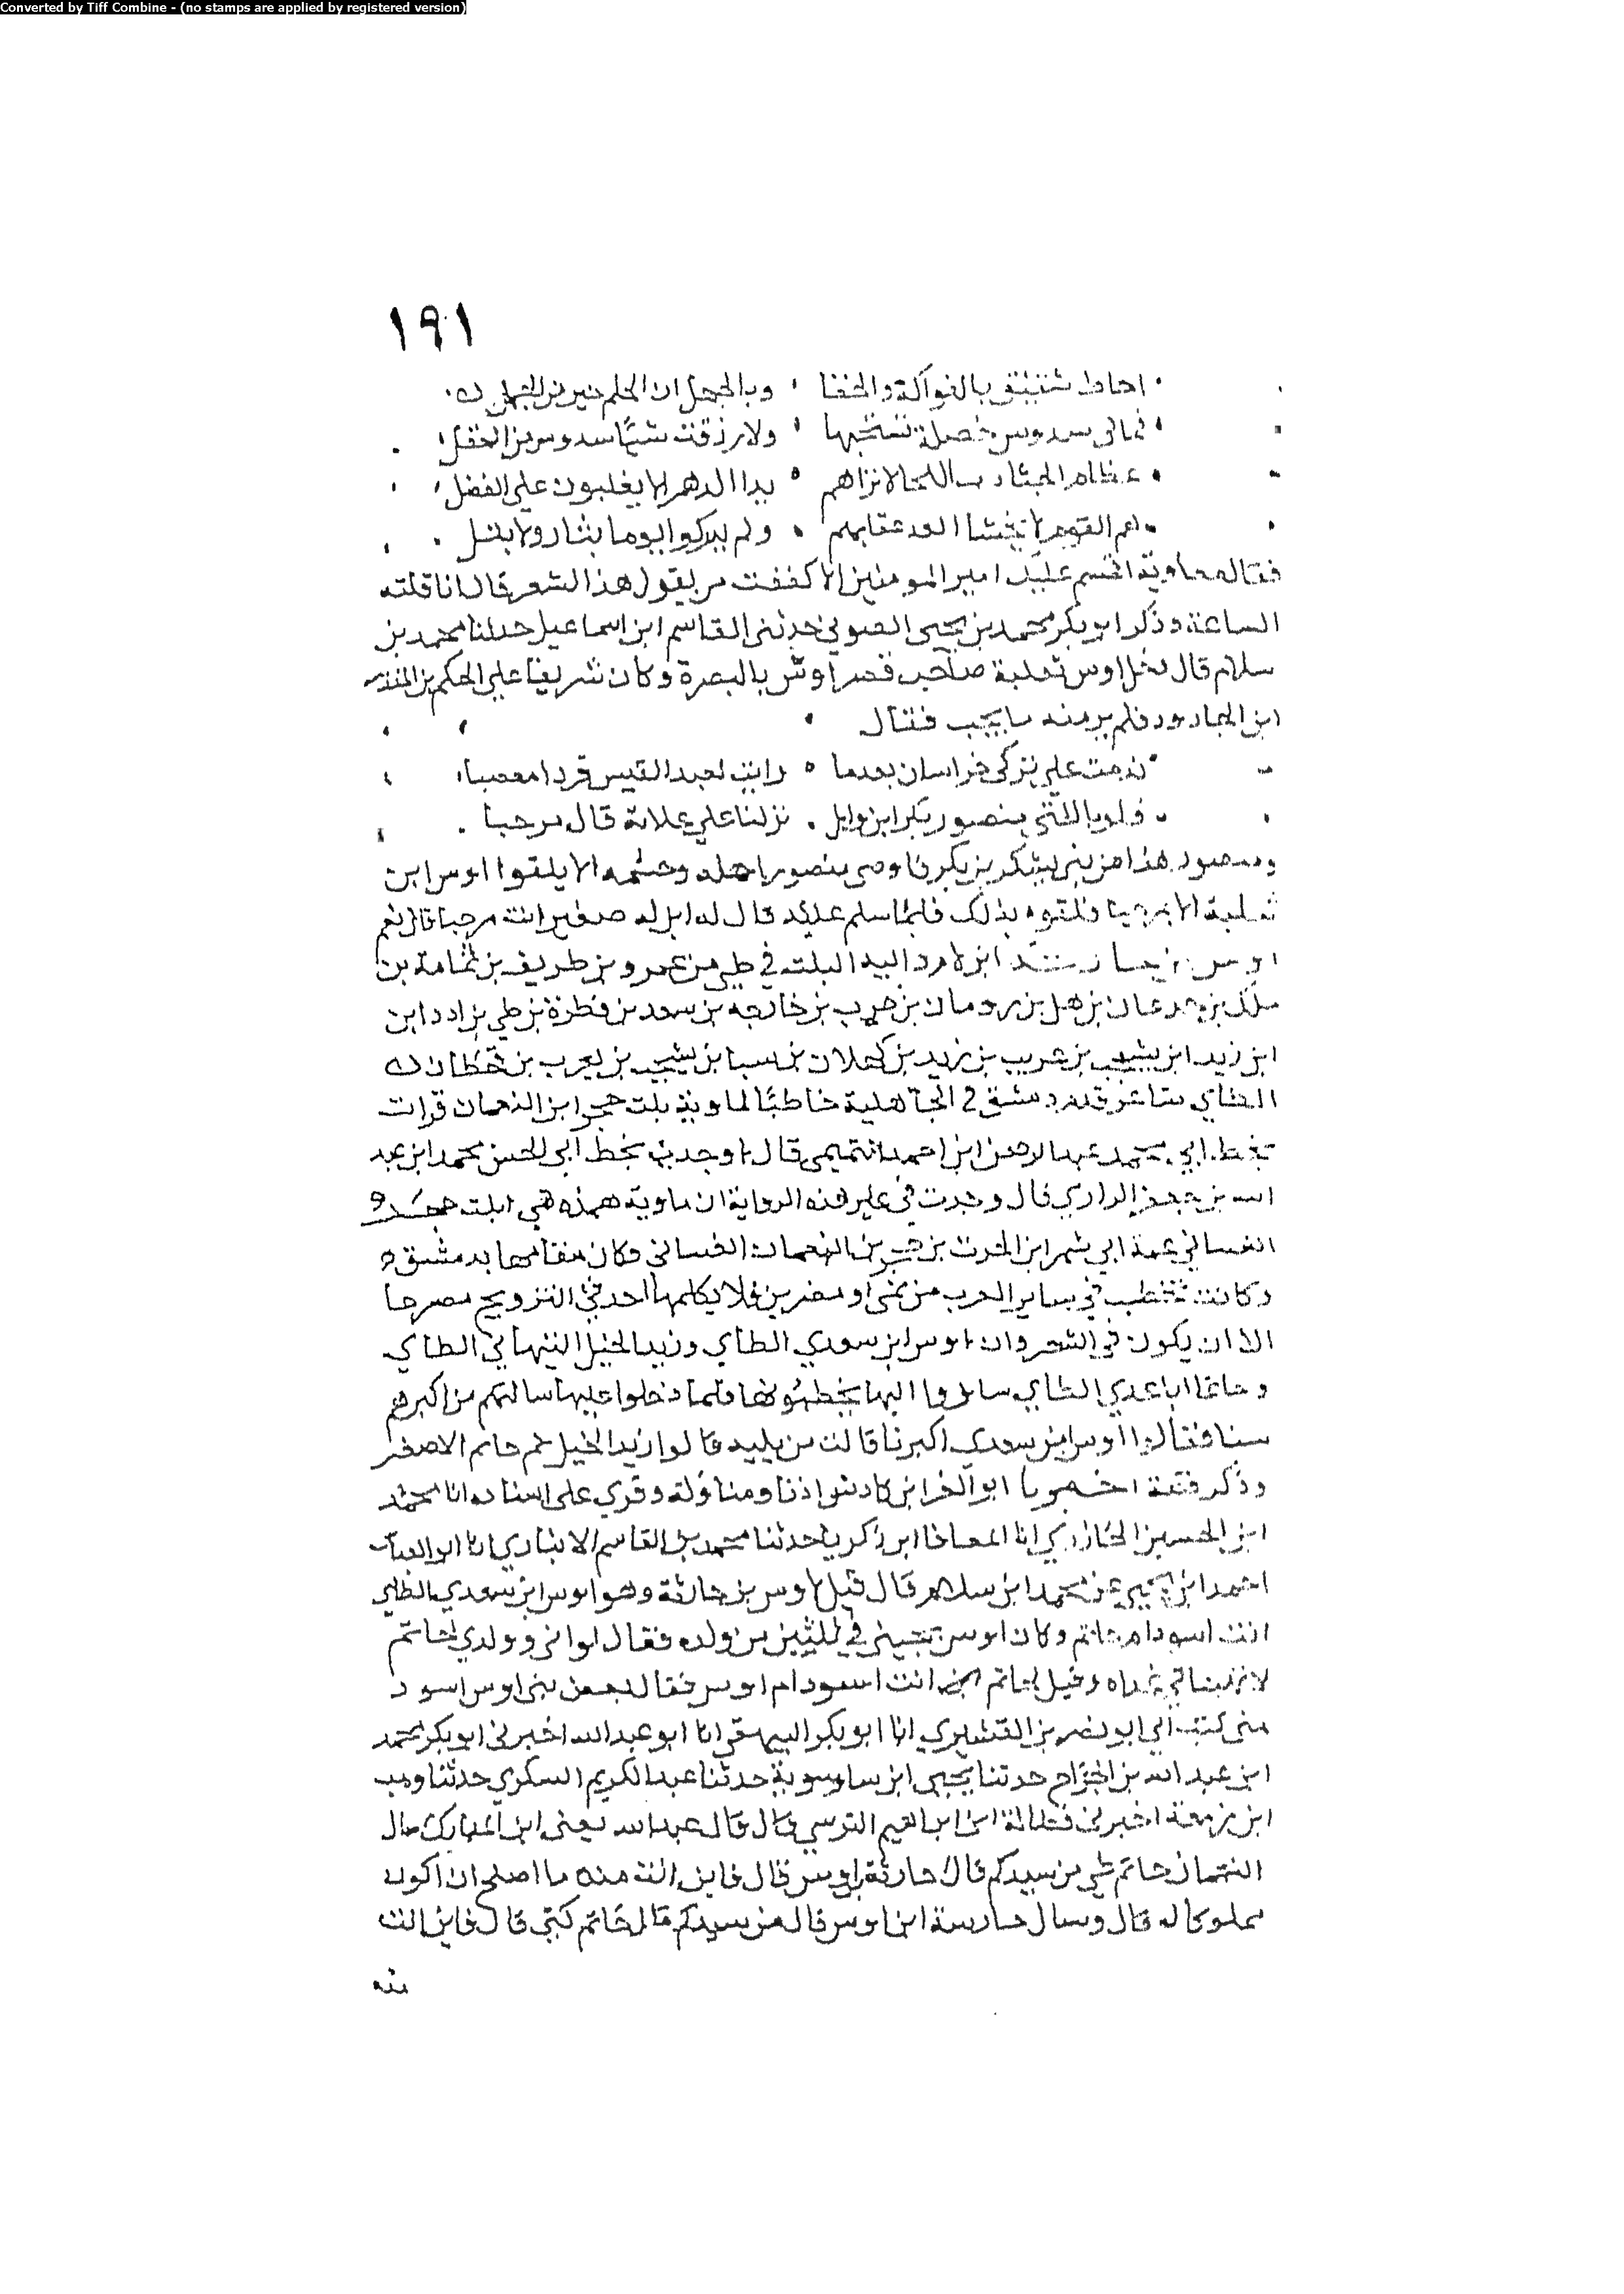 Converted by Tiff Combine - (no stamps are applied by registered version)
١٩١
احاط شقيق بالنواكة والخنا وبالجهل ان الحلم خير من الجهل
فما في سدوس خصلة تستحبها ولا رزقت شيئا سدوس من العقل
عظام اللحا لا تراهم يدا الدهر الا يغلبون على الفضل
هم القوم لا يخشا العدو عقابهم ولم يدركوا يوما بثار ولا بتبل
فقال معاوية اقسم عليك امير المومنين الا كففت من يقول هذا الشعر قال انا قلته
الساعة وذكر ابو بكر محمد بن يحيى الصولي حدثني القاسم ابن اسماعيل حدثنا محمد بن
سلام قال دخل اوس ثعلبة صاحب قصر اوس بالبصرة وكان شريفا على الحكم بن المنذر
ابن الجارود فلم ير منه ما يجب فقال
ندمت على تركى خراسان بعدما رايت لعبد القيس قردا معصبا
فلو بالفتى منصور بكر ابن وايل نزلنا على علاته قال مرحبا
ومنصور هذا من بني يشكر بن بكر فاوصى منصور اهله وحشمه الا يلقوا اوس ابن
ثعلبة الا بمرحبا فلقوه بذلك فلما سلم عليه قال له ابن له صغير انت مرحبا قال نعم
اوس بن ابن لام البيه البلت في طي من عمرو بن طريف بن ثمامة بن
ملك بن جدعان بن هل بن رومان بن حرب بن خارجه بن سعد بن فطرة بن طي بن ادد ابن
ابن زيد ابن يشجب بن عريب بن زيد بن كهلان بن سبا بن يشجب بن يعرب بن قحطان
الطاي شاعر قدم دمشق في الجاهلية خاطبا لماوية بلت حجر ابن النعمان قرات
بخط ابي محمد عبد الرحمن ابن احمد التميمي قال وجدت بخط ابي الحسن محمد ابن عبد
الله بن جعفر الرازي قال وجدت في غير هذه الرواية ان ماوية هذه هي ابلت حجر
الغساني عمة ابي شمر ابن الحرث بن حجر بن النعمان الغساني وكان مقامها بدمشق
وكانت تخطب في ساير العرب من يمنى او مضر بن فلا يكلمها احد في التزويج مصرحا
الا ان يكون في الشعر وان اوس ابن سعدي الطاي وزيد الخيل النبهاني الطاي
وحاتما ابا عدي الطاي ساروا اليها يخطبونها فلما دخلوا عليها سالتهم من اكبرهم
سنا فقالوا اوس ابن سعدي اكبرنا قالت من يليه قالوا زيد الخيل ثم حاتم الاصغر
وذكر قصة اخبرنا ابو العز ابن كادش اذنا ومناولة وقري على اسناده انا محمد
ابن الحسين الجازري انا المعافا ابن زكريا حدثنا محمد بن القاسم الانباري انا ابو العباس
احمد ابن يحيى عن محمد ابن سلام قال قيل لاوس بن حارثة وهو اوس ابن سعدي الطاي
انت اسود ام حاتم وكان اوس في ثلثين من ولده فقال لو انى وولدي لحاتم
لانهبنا في غداه وقيل لحاتم انت اسود ام اوس فقال بعض بني اوس اسود
منى كتب الي ابو نصر بن القشيري انا ابو بكر البيهقي انا ابو عبد الله اخبرني ابو بكر محمد
ابن عبد الله بن الجراح حدثنا يحيى ابن ساسوية حدثنا عبد الكريم السكري حدثنا وهب
ابن زمعة اخبرني فضالة ابن ابراهيم النرسي قال قال عبد الله يعني ابن المبارك سال
النعمان حاتم طي من سيدكم قال حارثة اوس قال فاين انت منه ما اصلح ان اكون
مملوكا له قال وسال حارسة ابن اوس قال من سيدكم قال حاتم قال فاين انت
منه